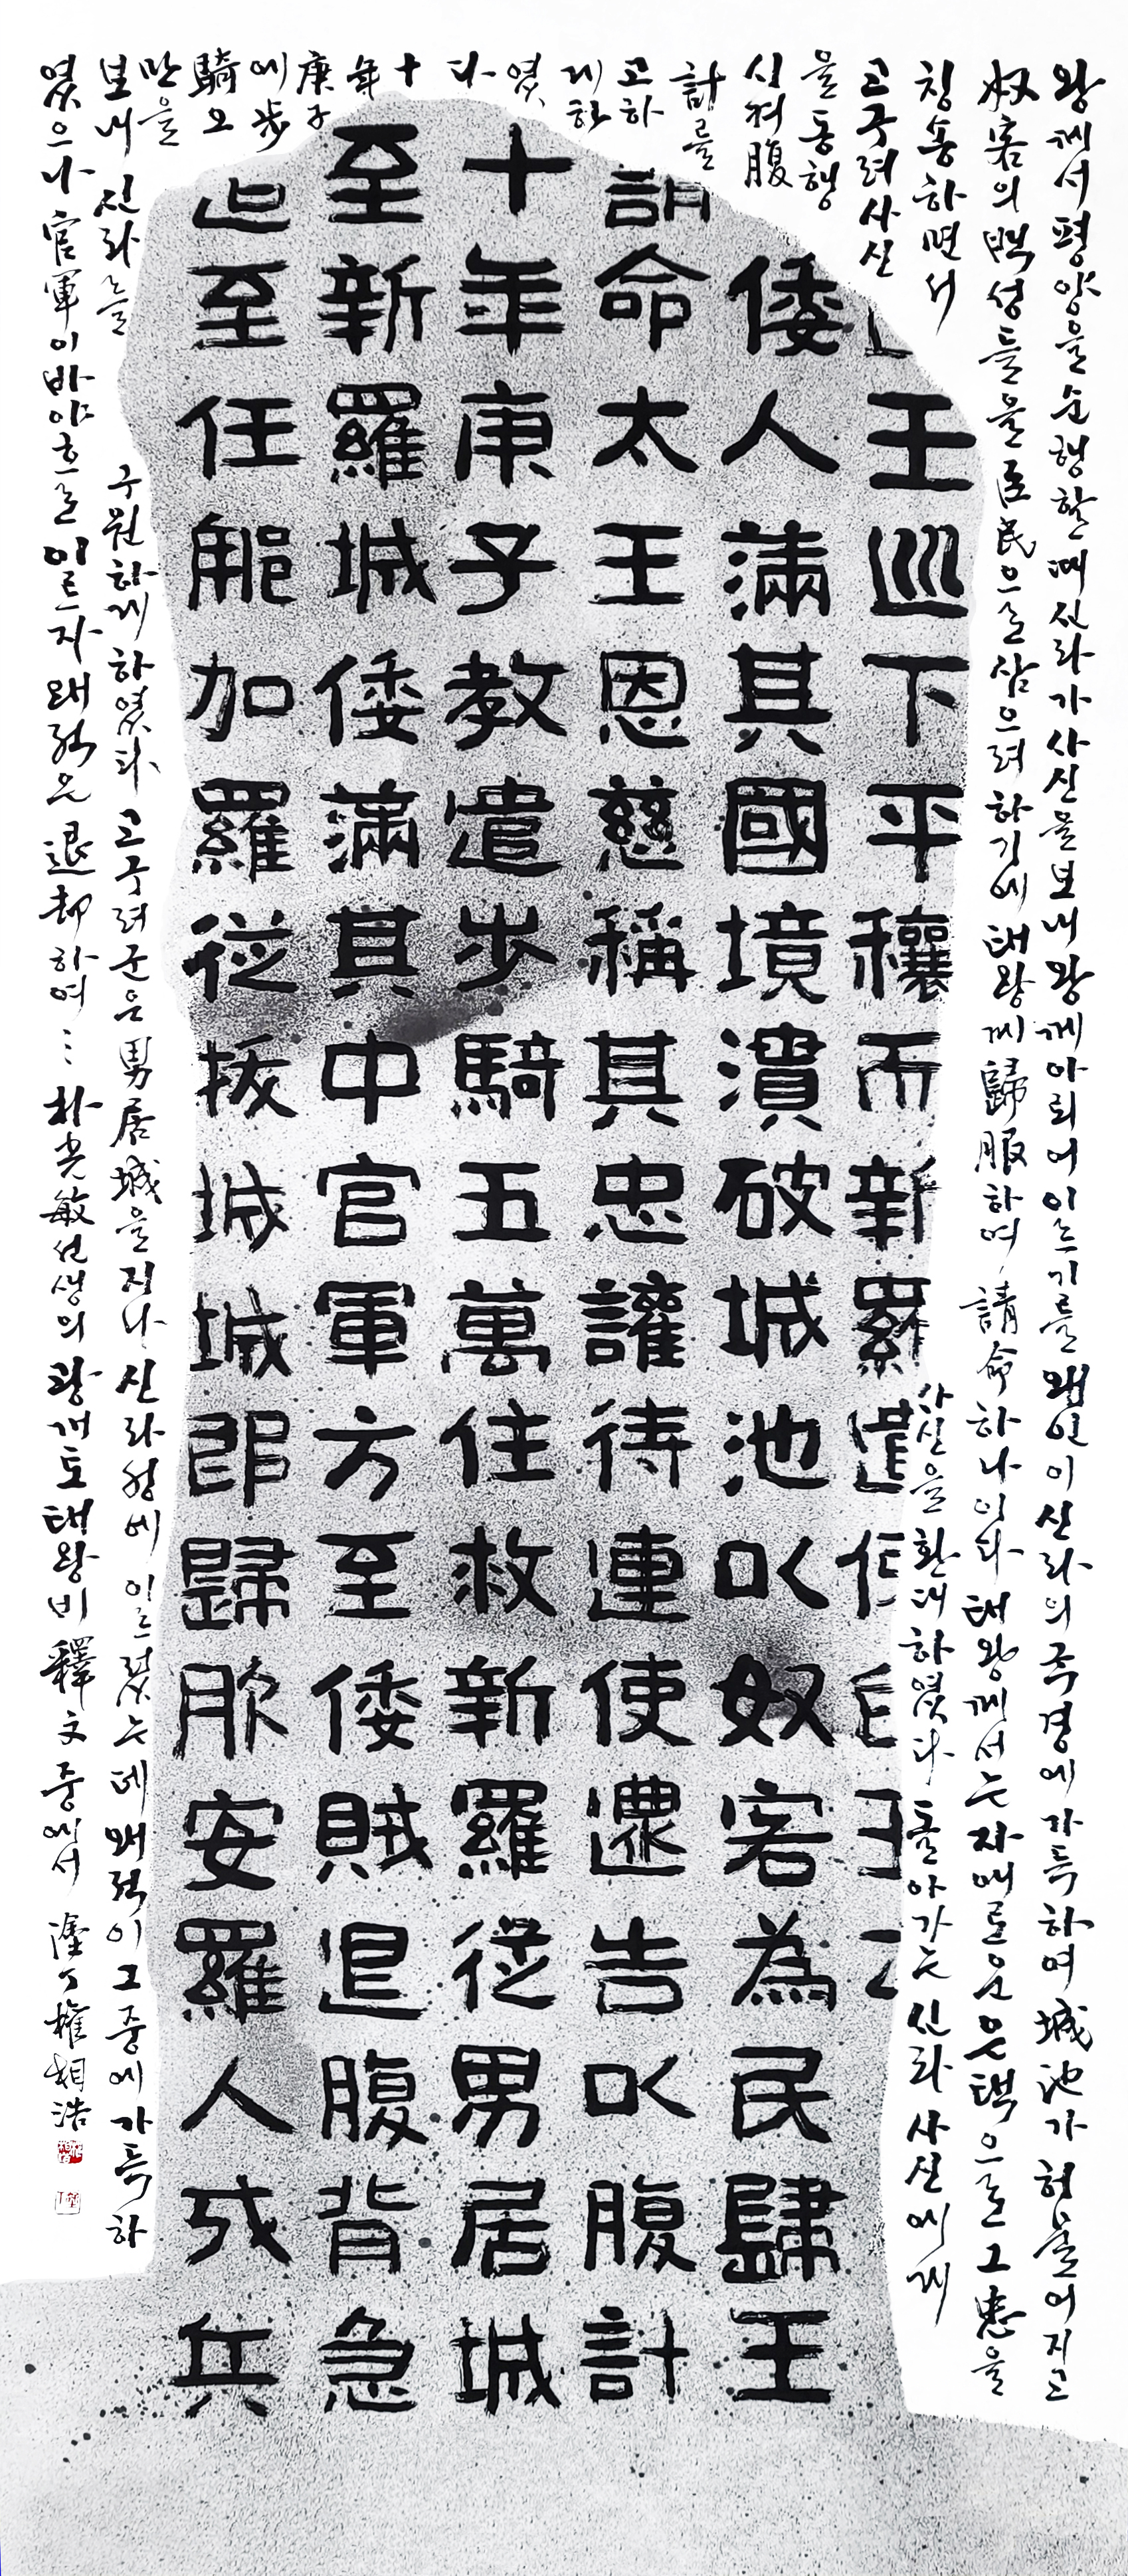 왕께서 평양을 순행할 때 신라가 사신을 보내 왕께 아뢰어 이르기를 왜인이 신라의 국경에 가득하여 城池가 헐물어지고
奴客의 백성들을 臣民으로 삼으려 하기에 태왕께 歸服하여 請命하나이다 태왕께서는 자애로운 은택으로 그 忠을
칭송하면서
사신을 환대하였다 돌아가는 신라 사신에게
고구려 사신
을 동행
시켜 腹
計를
고하
게 하
였
다
十
年
庚子
에 步
騎 오
만을
보내 신라를 구원하게 하였다 고구려군은 男居城을 지나 신라성에 이르렀는데 왜적이 그 중에 가득하
였으나 官軍이 바야흐로 이르자 왜적은 退却하여… 朴光敏 선생의 광개토태왕비 釋文 중에서 塗丁 權相浩
王巡下平穰而新羅遣使白王云
倭人滿其國境潰破城池以奴客為民歸王
請命太王恩慈稱其忠讙待連使還告以腹計
十年庚子教遣步騎五萬住救新羅從男居城
至新羅城倭滿其中官軍方至倭賊退腹背急
追至任那加羅從拔城城即歸服安羅人戍兵